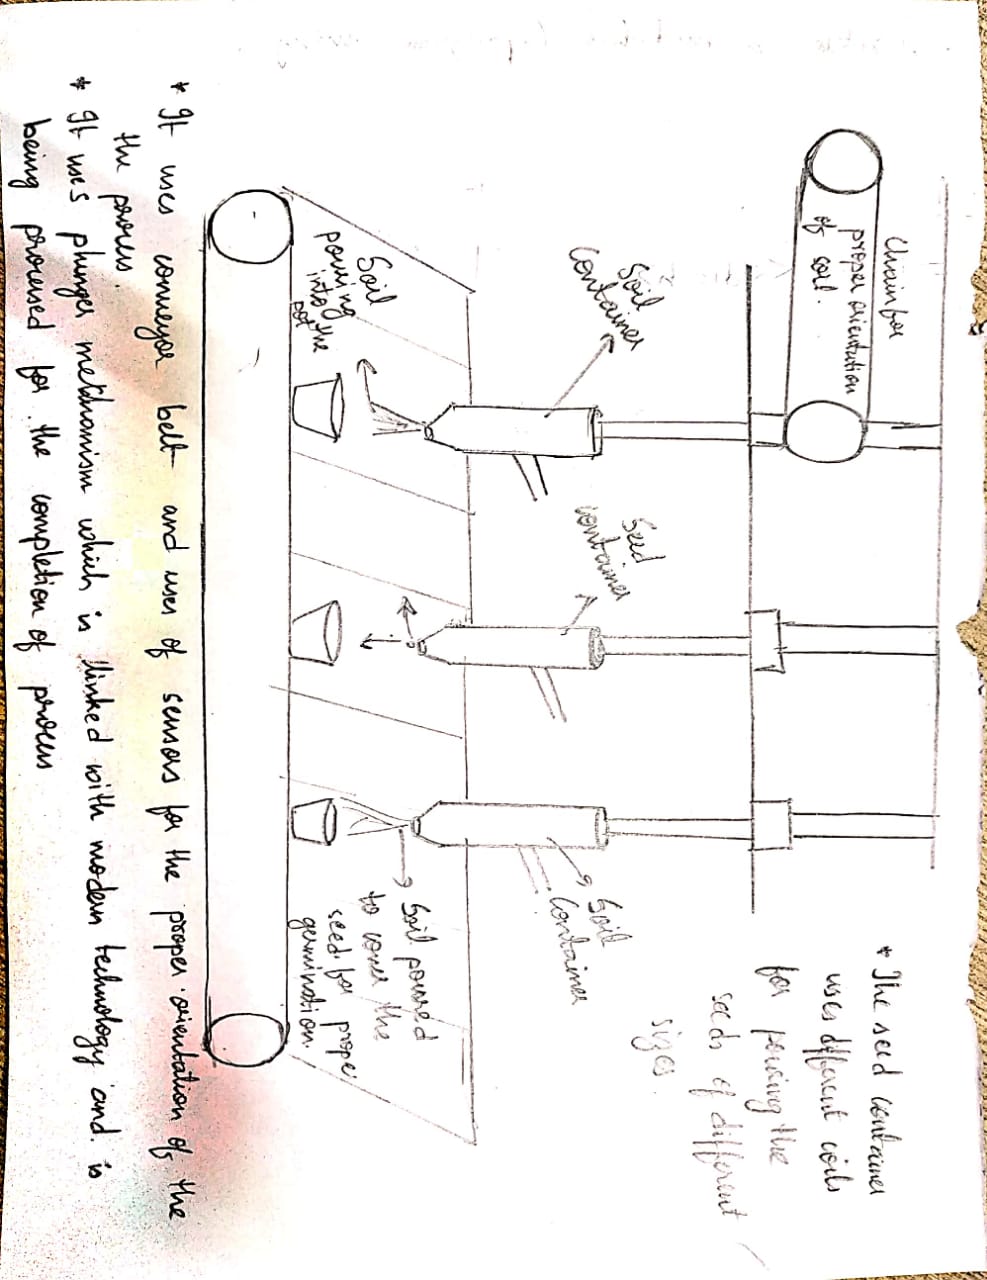 Chain for
proper orientation
of soil.
* The seed container
uses different coils
for pouring the
seeds of different
sizes.
Soil
Container
Seed
container
Soil
Container
Soil
pouring
into the
pot
Soil poured
to cover the
seed for proper
germination.
* It uses conveyor belt and uses of sensors for the proper orientation of the
the process.
* It uses plunger mechanism which is linked with modern technology and is
being processed for the completion of process